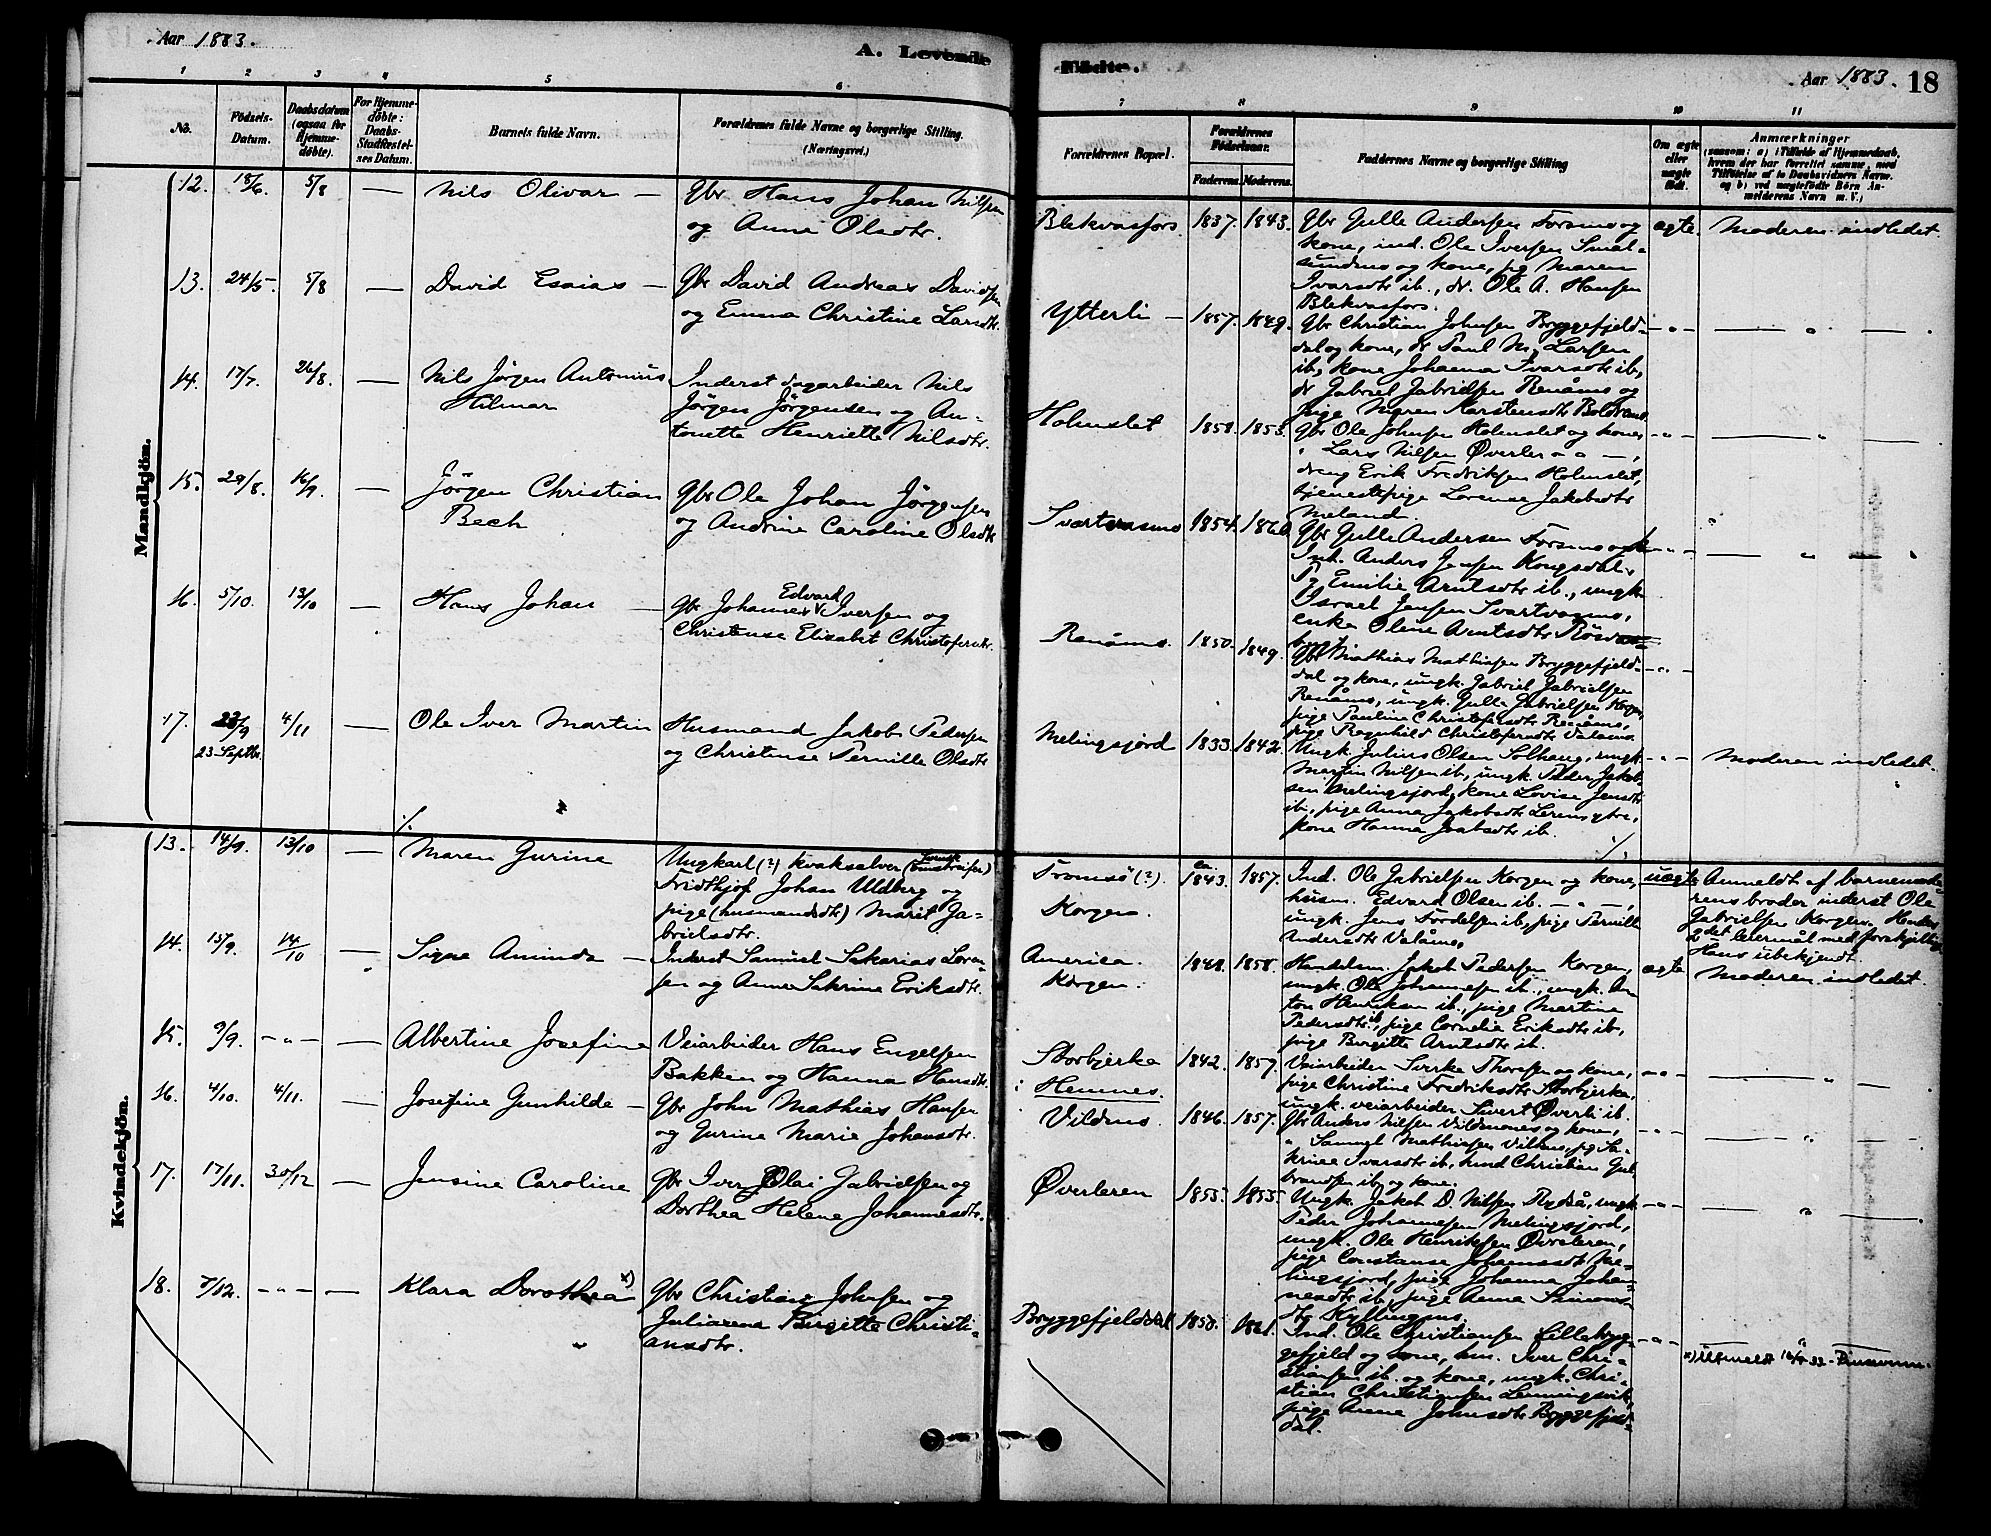 Aar 1883.
A. Levende
Fødte.
Aar 1883. 18
1 2 3 4 5 6
7 8 9 10 11
No.
Fødsels-
Datum.
Daabsdatum
(ogsaa for
Hjemme-
døbte).
For Hjemme-
døbte:
Daabs-
Stadfæstel-
ses Datum.
Barnets fulde Navn.
Forældrenes fulde Navne og borgerlige Stilling.
(Næringsvei.)
Forældrenes Bopæl.
Forældrenes
Fødselsaar.
Faderens. Moderens.
Faddernes Navne og borgerlige Stilling
Om ægte
eller
uægte
født.
Anmærkninger
(saasom: a) i Tilfælde af Hjemmedaab,
hvem der har forrettet samme, med
Tilføielse af to Daabsvidners Navne,
og b) ved uægtefødte Børn An-
melderens Navn m. V.)
Mandkjøn.
12. 18/6. 5/8 — Nils Olivar — Gbr Hans Johan Nilsen
og Anne Olsdtr.
Blekvasfors 1837. 1843. Gbr Gulle Andersen Forsmo og
kone, ind. Ole Iversen Smal-
sundmo og kone, pg Maren
Ivarsdtr ib., dr. Ole A. Hansen
Blekvasfors.
ægte. Moderen indledet.
13. 24/5. 5/8 — David Esaias — Gbr David Andreas Davidsen
og Emma Christine Larsdtr.
Ytterli — 1857. 1849. Gbr Christian Johnsen Bryggefjeld-
dal og kone, dr Paul M. Larsen
ib, kone Johanna Ivarsdtr ib,
dr Gabriel Gabrielsen Renåmo og
pige Maren Karstensdtr
14. 17/7. 26/8. — Nils Jörgen Antonius
Hilmar
Inderst dagarbeider Nils
Jörgen Jörgensen og An-
tonette Henriette Nilsdtr.
Holmslet 1858. 1853. Gbr Ole Johnsen Holmslet og kone,
" Lars Nilsen Øverler — " — ,
dreng Erik Fredriksen Holmslet,
tjenestepige Lorense Jakobsdtr
Meland.
15. 29/8. 16/9. — Jörgen Christian
Bech
Gbr Ole Johan Jörgensen
og Andrine Caroline Olsdtr
1854. 1860. Gbr Gulle Andersen Forsmo og k
Ind. Anders Jensen Kongsdal,
Pg Emilie Arntsdtr ib., ungk.
Israel Jensen Svartvasmo,
enke Oline Arntsdtr
16. 5/10. 13/10 — Hans Johan — Gbr Johannes Edvard Iversen og
Christense Elisabet Christofersdtr.
Renåmo. 1850. 1849. Gbr Mathias Mathisen Bryggefjeld-
dal og kone, ungk. Gabriel Gabrielsen
Renåmo, ungk. Gulle Gabrielsen Korgen,
pige Pauline Christofersdtr Renåmo,
pige Ragnhild Christofersdtr Valåmo
17. 23/9 4/11 — Ole Iver Martin Husmand Jakob Pedersen
23. Septbr. og Christense Pernille Olsdtr
Melingsjord 1833. 1842. Ungk. Julius Olsen Solhaug, ungk.
Martin Nilsen ib, ungk. Peder Jakob-
sen Melingsjord, kone Lovise Jensdtr
ib., pige Anna Jakobsdtr
kone Hanna ib.
Moderen indledet.
Kvindekjøn.
13. 14/9. 13/10 — Maren Gurine Ungkarl (?) kvaksalver (omstreifer)
Fridthjof Johan Uldberg og
pige (husmandsdtr) Marit Ga-
brielsdtr.
Tromsö (?).
Korgen.
ca 1843. 1857. Ind. Ole Gabrielsen Korgen og kone,
husm. Edvard Olsen ib. — " — ,
ungk. Jens ib, pige Pernille
Andersdtr Valåmo,
uægte Anmeldt af barnemode-
rens broder inderst Ole
Gabrielsen Korgen.
det leiermål med forskjellig.
Hans ubekjendt.
14. 15/9. 14/10 — Signe Aminda — Inderst Samuel Sakarias Loren-
sen og Anne Sakrine Eriksdtr.
America.
Korgen.
1848. 1858. Handelsm. Jakob Pedersen Korgen,
ungk. Ole Johannesen ib., ungk. An-
ton Henriksen ib., pige Martine
Pedersdtr ib, pige Cornelia Eriksdtr ib,
pige Birgitte Arntsdtr ib.
ægte Moderen indledet.
15. 9/9. — " — — Albertine Josefine Veiarbeider Hans Engelsen
Bakken og Hanna Hansdtr.
Storbjerka
i Hemnes.
1842. 1859. Veiarbeider Sivert Thoresen og kone,
pige Christine Fredriksdtr Storbjerka,
ungk. veiarbeider Sivert Øverli ib.
16. 4/10. 4/11. — Josefine Gunhilde — Gbr John Mathias Hansen
og Gurine Marie Johansdtr.
Vildmo 1846. 1857. Gbr Anders Nilsen Vildmones og kone,
" Samuel Mathisen Vildmo, pg Sa-
krine Ivarsdtr ib, husmd Christian Gul-
brandsen ib og kone.
17. 17/11. 30/12 — Jensine Caroline Gbr Iver Olai Gabrielsen og
Dorthea Helene Johannesdtr.
Øverleren 1855. 1855. Ungk. Jakob D. Nilsen Rydså, ungk
Peder Johannesen Melingsjord,
ungk. Ole Henriksen Øverleren,
pige Constanse Johansdtr Me-
lingsjord, pige Johanna Johan-
nesdtr ib, pige Anna Simons-
dtr Kyllingmo.
18. 7/12. — " — — Klara Dorothea x) Gbr Christian Johnsen og
Julianna Birgitte Christi-
ansdtr.
Bryggefjelddal 1858. 1861. Ind. Ole Christiansen Lillebryg-
gefjeld og kone, hm. Iver Chri-
stiansen ib. og kone, ungk. Chri-
stian Christiansen
pige Anne Johnsdtr Bryggefjeld-
dal.
x) Utmeldt